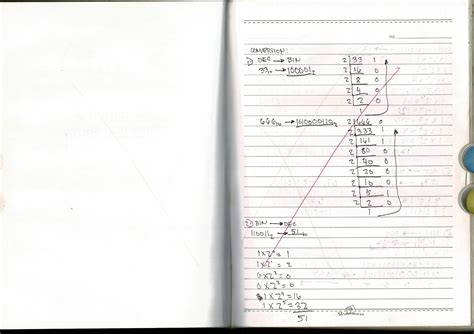 NO.
CONVERSION:
1) DEC → BIN
33₁₀ → 100001₂
2 33 1
2 16 0
2 8 0
2 4 0
2 2 0
1
666₁₀ →
2 666 0
2 333 1
2 161 1
2 80 0
2 40 0
2 20 0
2 10 0
2 5 1
2 2 0
1
2) BIN → DEC
110011₂ → 51₁₀
1 X 2⁰ = 1
1 X 2¹ = 2
0 X 2² = 0
0 X 2³ = 0
1 X 2⁴ = 16
1 X 2⁵ = 32
51